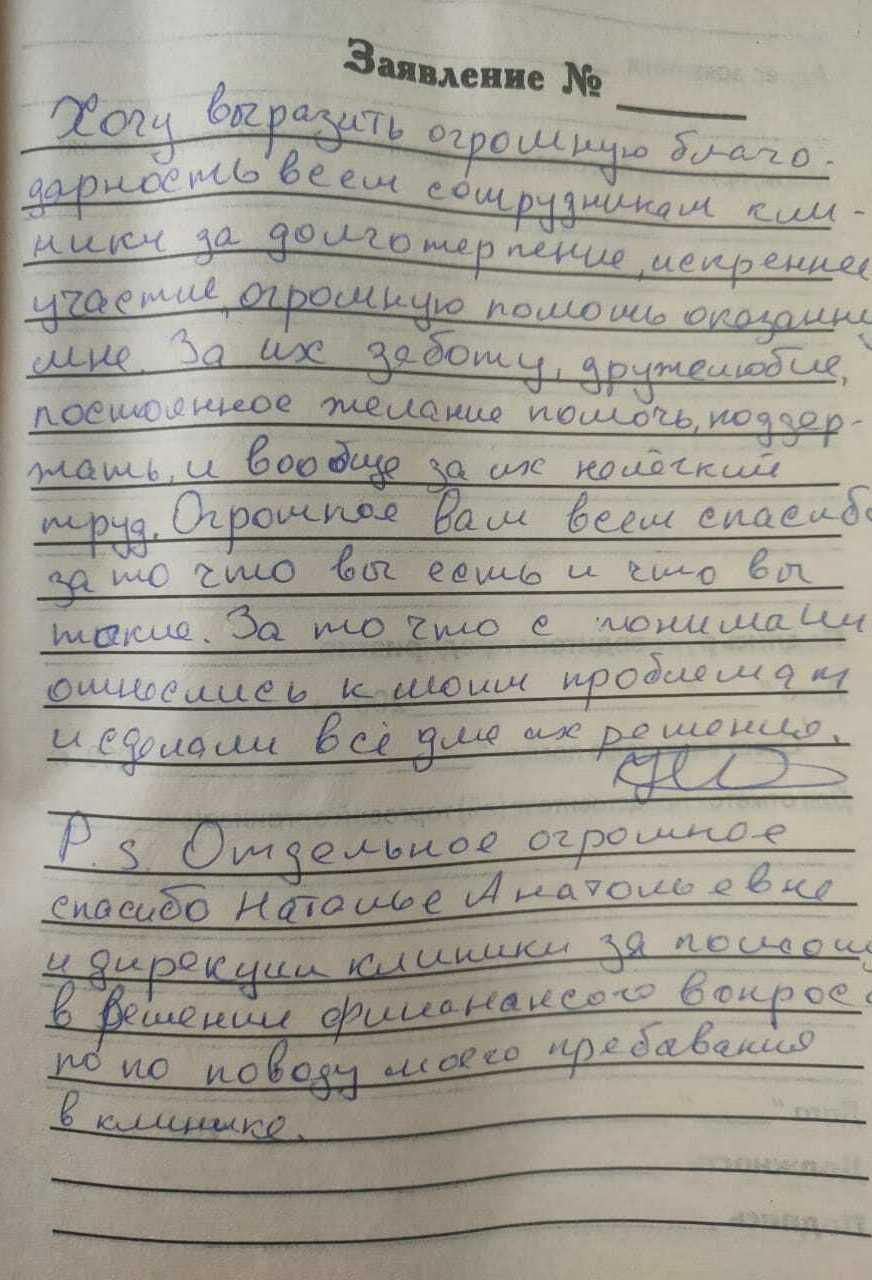 Заявление № ____
Хочу выразить огромную благо-
дарность всем сотрудникам кли-
ники за долготерпение, искреннее
участие, огромную помощь оказанну
мне. За их заботу, дружелюбие,
постоянное желание помочь, поддер-
жать, и вообще за их нелёгкий
труд. Огромное вам всем спасибо
за то что вы есть и что вы
такие. За то что с понимани
отнеслись к моим проблемам
и сделали всё для их решения.
P.s. Отдельное огромное
спасибо Наталье Анатольевне
и дирекции клиники за помощ
в решении финанансого вопрос
по по поводу моего пребавания
в клинике.